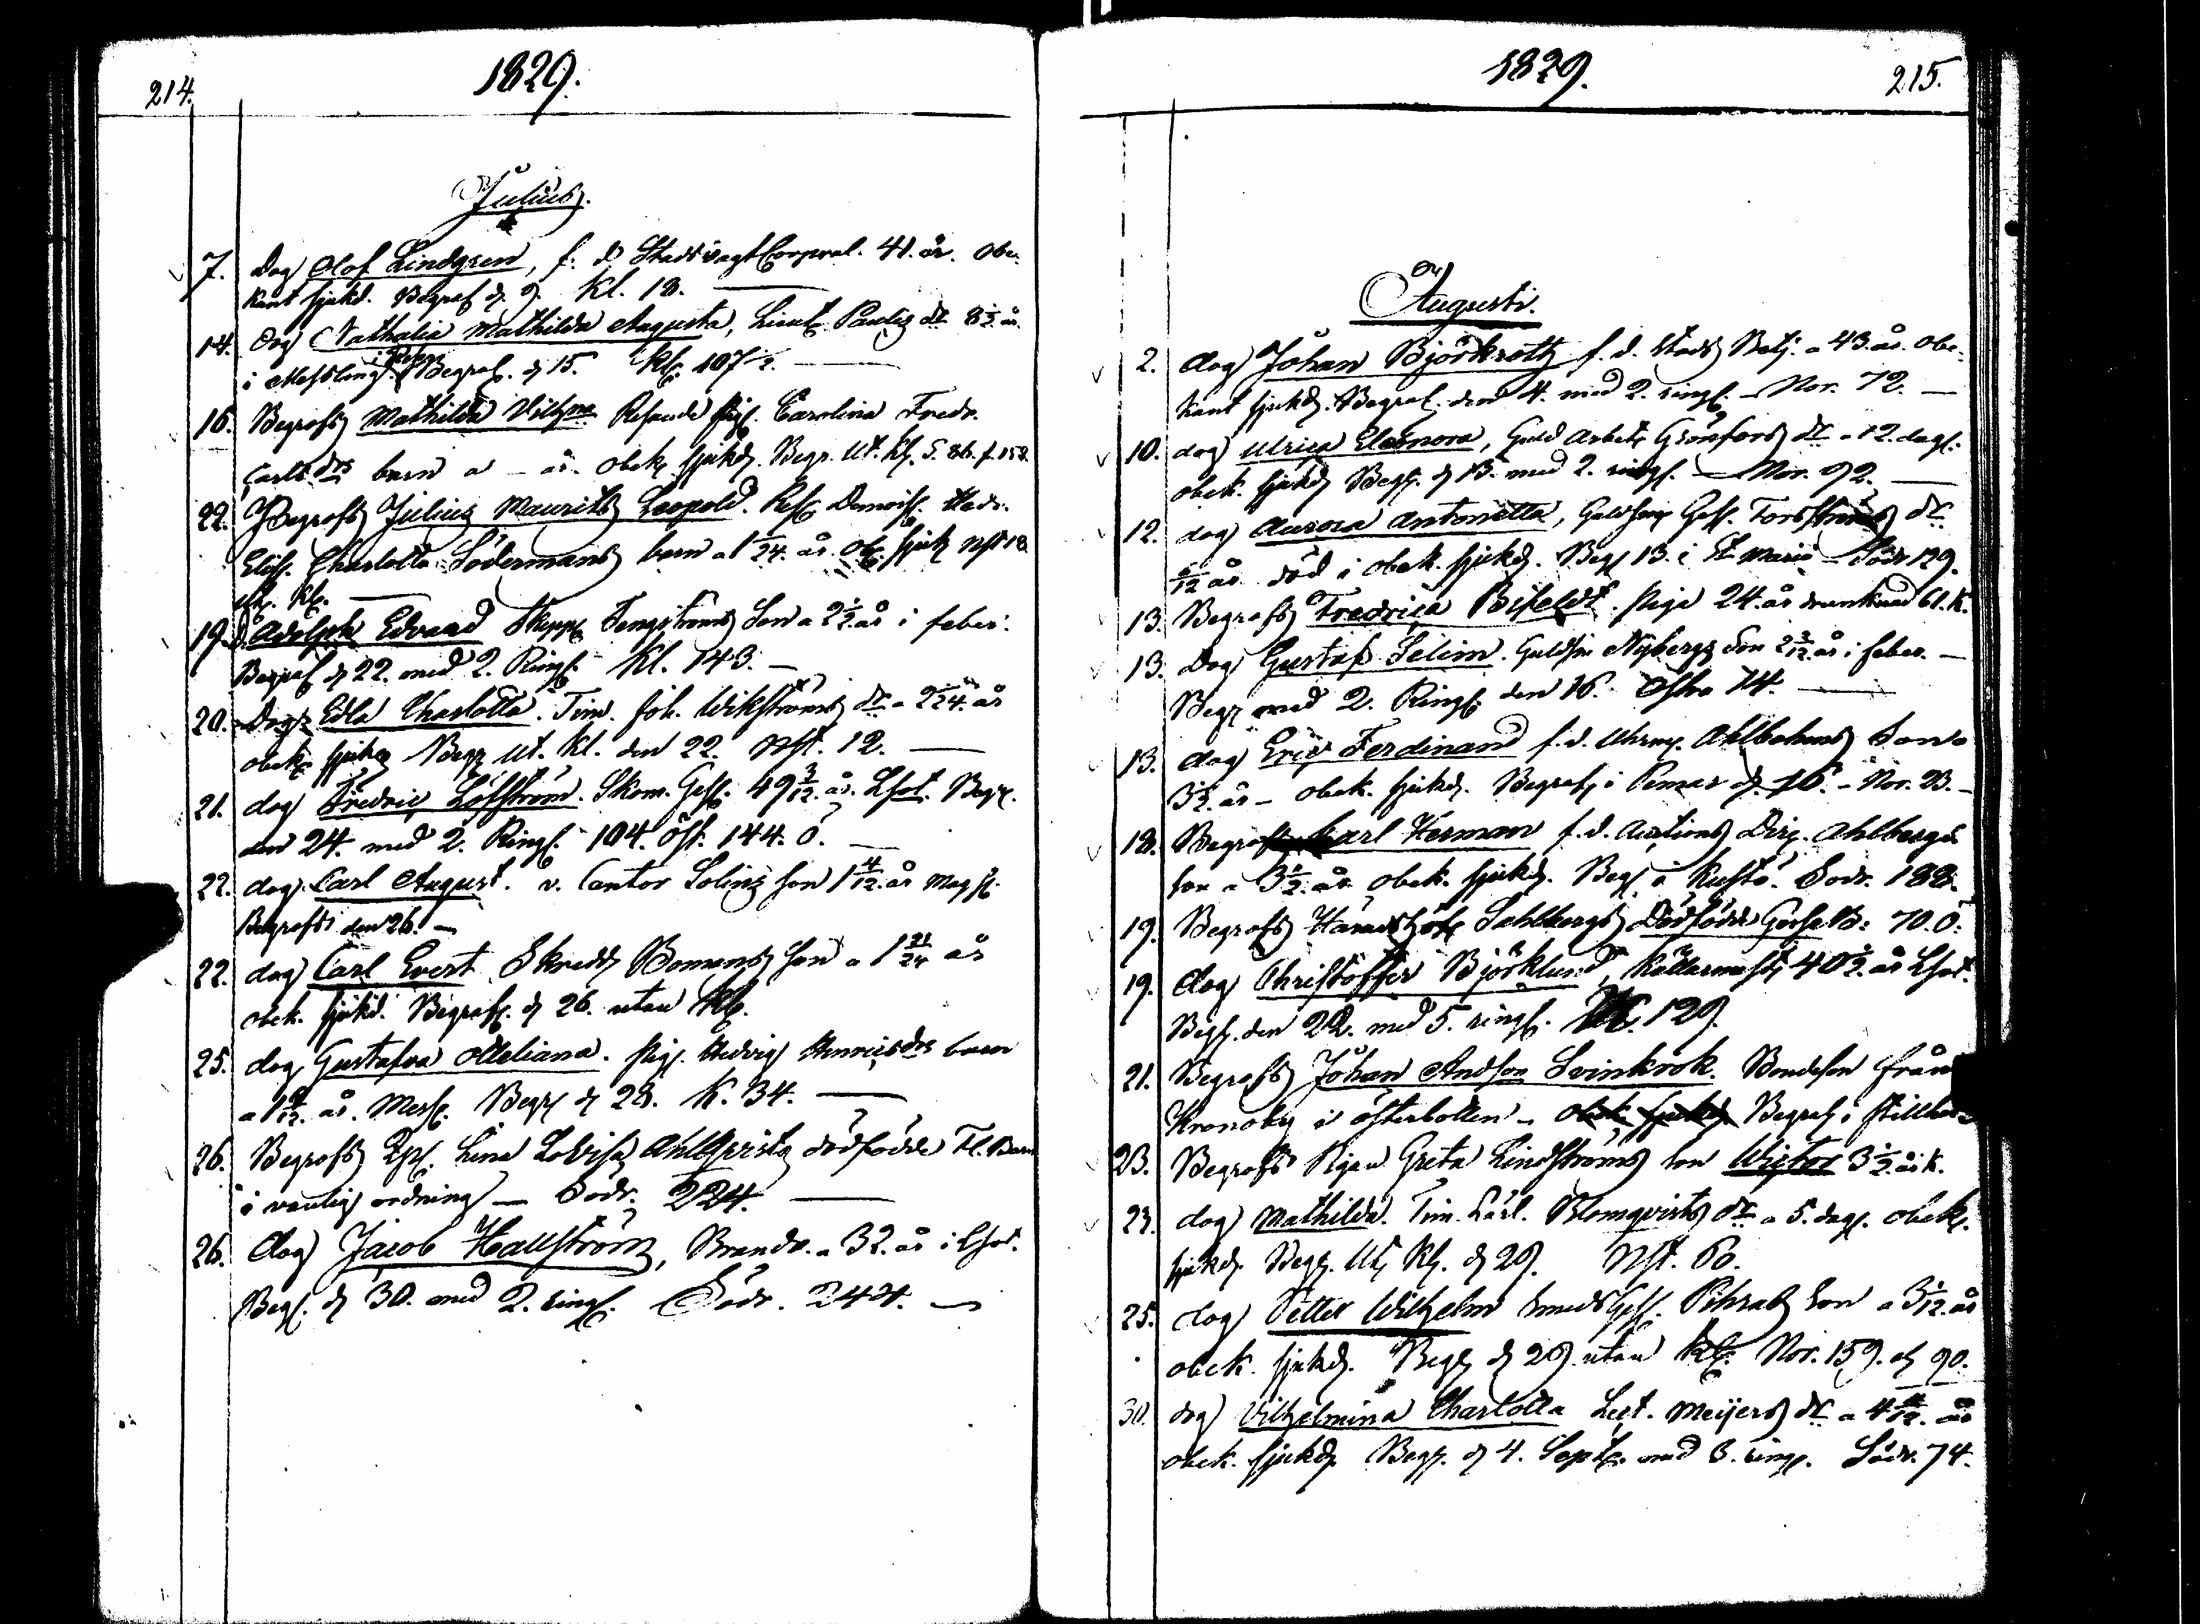 214.
1829.
Julius.
7. dog Olof Lindgren, f. d. Stadsvagt Corporal. 41. år. obe-
kant sjukd. Begraf. d. 9. Kl. 18.
14. dog Nathalia Mathilda Augusta, Lieut. dr 8 1/2 år.
i Messling. Begraf. d. 15. Kl. 107 1/2.
16. Begrofs Mathilda Vilhma Resande Pig. Carolina Fredr.
Carls drs barn a - år. obek. sjukd. Begr. Ut. Kl. S. 86. f. 158.
22. Begrofs Julius Maurits Leopold. Demois. Hedv.
Elis. Charlotta Södermans barn a 1/24. år. ob. sjuk Nst 18.
utk. Kl.
19. d. Adolph Edvard Skepp. Tengströms Son a 2 1/2 år i feber.
Begraf d 22. med 2. Ring. Kl. 143.
20. Dog Edla Charlotta. Tim. Joh. Wikströms dr a 2 1/24. år
obek. sjukd Begr Ut. Kl. den 22. Nst. 12.
21. dog Fredric Löfström. Skom. Gess. 49 3/12. år. Lsot. Begr.
den 24. med 2. Ring. 104. Öst. 144. Ö.
22. dog. Carl August. v. Cantor Solins son 1 4/12. år Mag sj.
Begrofs den 26.
22. dog Carl Evert Skredd. Bomans son a 1 21/24 år
obek. sjukd. Begraf. d 26. utan Kl.
25. dog Gustafva Otteliana. Pig. Hedvig Henricsdrs barn
a 1 år. Mess. Begr d 28. K. 34.
26. Begrofs Lena Lovisa Ahlqvists dödfödde Fl. Barn
i vanlig ordning Södr. 224.
26. dog Jacob Hallström, Brandv. a 32. år i Lsot.
Begr. d 30. med 2. ring. Södr. 244.
1829.
215.
Augusti.
2. dog Johan Björkroth f. d. Stads Betj. a 43. år. obe-
kant sjukd. Begraf. den 4. med 2. ring. Nor. 72.
10. dog Ulrica Eleonora, Guld Arbet. Grönfors dr a 12. dag.
obek. sjukd Begr. d 13. med 2. ring. Nor. 92.
12. dog Aurora Antonetta, Guldsm Gess. Forsströms dr
/12 år död i obek. sjukd. Begr 13. i St Marie Södr 129.
13. Begrofs Fredrica Bifeldt. Piga 24. år drunknad 61. K.
13. Dog Gustaf Selim. Guldsm Nybergs Son 2 3/12. år i feber.
Begr med 2. Ring. den 16. Östra 14.
13. dog Eric Ferdinand f. d. Uhrm. Ahlbohms Son a
3 1/2. år obek. sjukd. Begraf. i Pemar d. 16. Nor. 23.
18. Begrofs Carl Herman f. d. Auctions Dir. Ahlbergs
son a 3 1/2. år. obek. sjukd. Begr i Kustö. Södr. 188.
19. Begrofs Häradshöf. Sahlbergs Dödfödde Gosseb: 70. Ö.
19. dog Christoffer Björklund, Källarmäst. 40 1/2. år Lsot.
Begr. den 22. med 5. ring. Kl. 129.
21. Begrofs Johan Andson Svinkrok. Bondeson från
Kronoby i Österbotten obek. sjukd. Begraf. i stillhet
23. Begrofs Pigan Greta Lindströms son Wictor 3 1/2. år K.
23. dog Mathilda. Tim. Karl. Blomqvists dr a 5. dag. obek.
sjukd. Begr. Ut. Kl. d 29. Nst. 60.
25. dog Petter Wilhelm smeds Gess. son a 3 1/12. år
obek. sjukd. Begr d 29. utan Kl. Nor. 159. och 90.
30. dog Vilhelmina Charlotta Lect. Meijers dr a 4 /12. år
obek. sjukd. Begr. d 4. Sept. med 3. ring. Södr. 74.